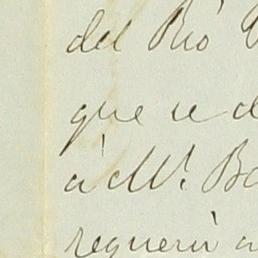 del Rio
que se d
à Mr. Ba
requerir a